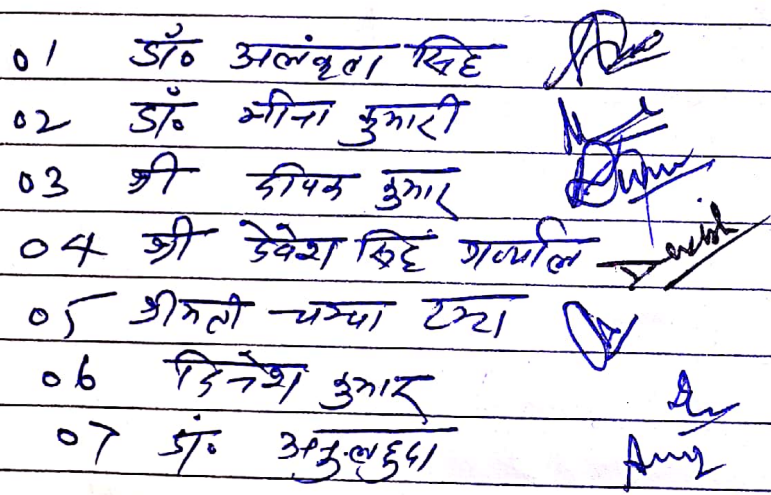 01 डॉ० अलंकृता सिंह
02 डॉ० मीना कुमारी
03 श्री दीपक कुमार
04 श्री देवेश सिंह गर्ब्याल Devesh
05 श्रीमती चम्पा टम्टा
06 दिनेश कुमार
07 डॉ०